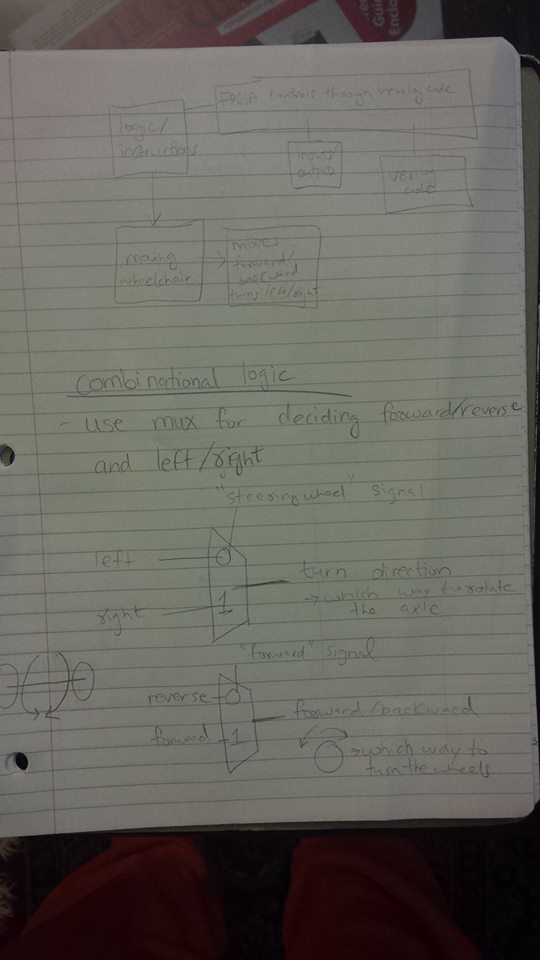 Guid
Endo
FPGA controls through verilog code
logic/
instructions
inputs/
outputs
verilog
code
moving
wheelchair
moves
forward/
backward
turns left/right
combinational logic
- use mux for deciding forward/reverse
and left/right
"steering wheel" signal
left
0
turn direction
→ which way to rotate
the axle
right
1
"forward" signal
reverse
0
forward/backward
forward
1
→ which way to
turn the wheels